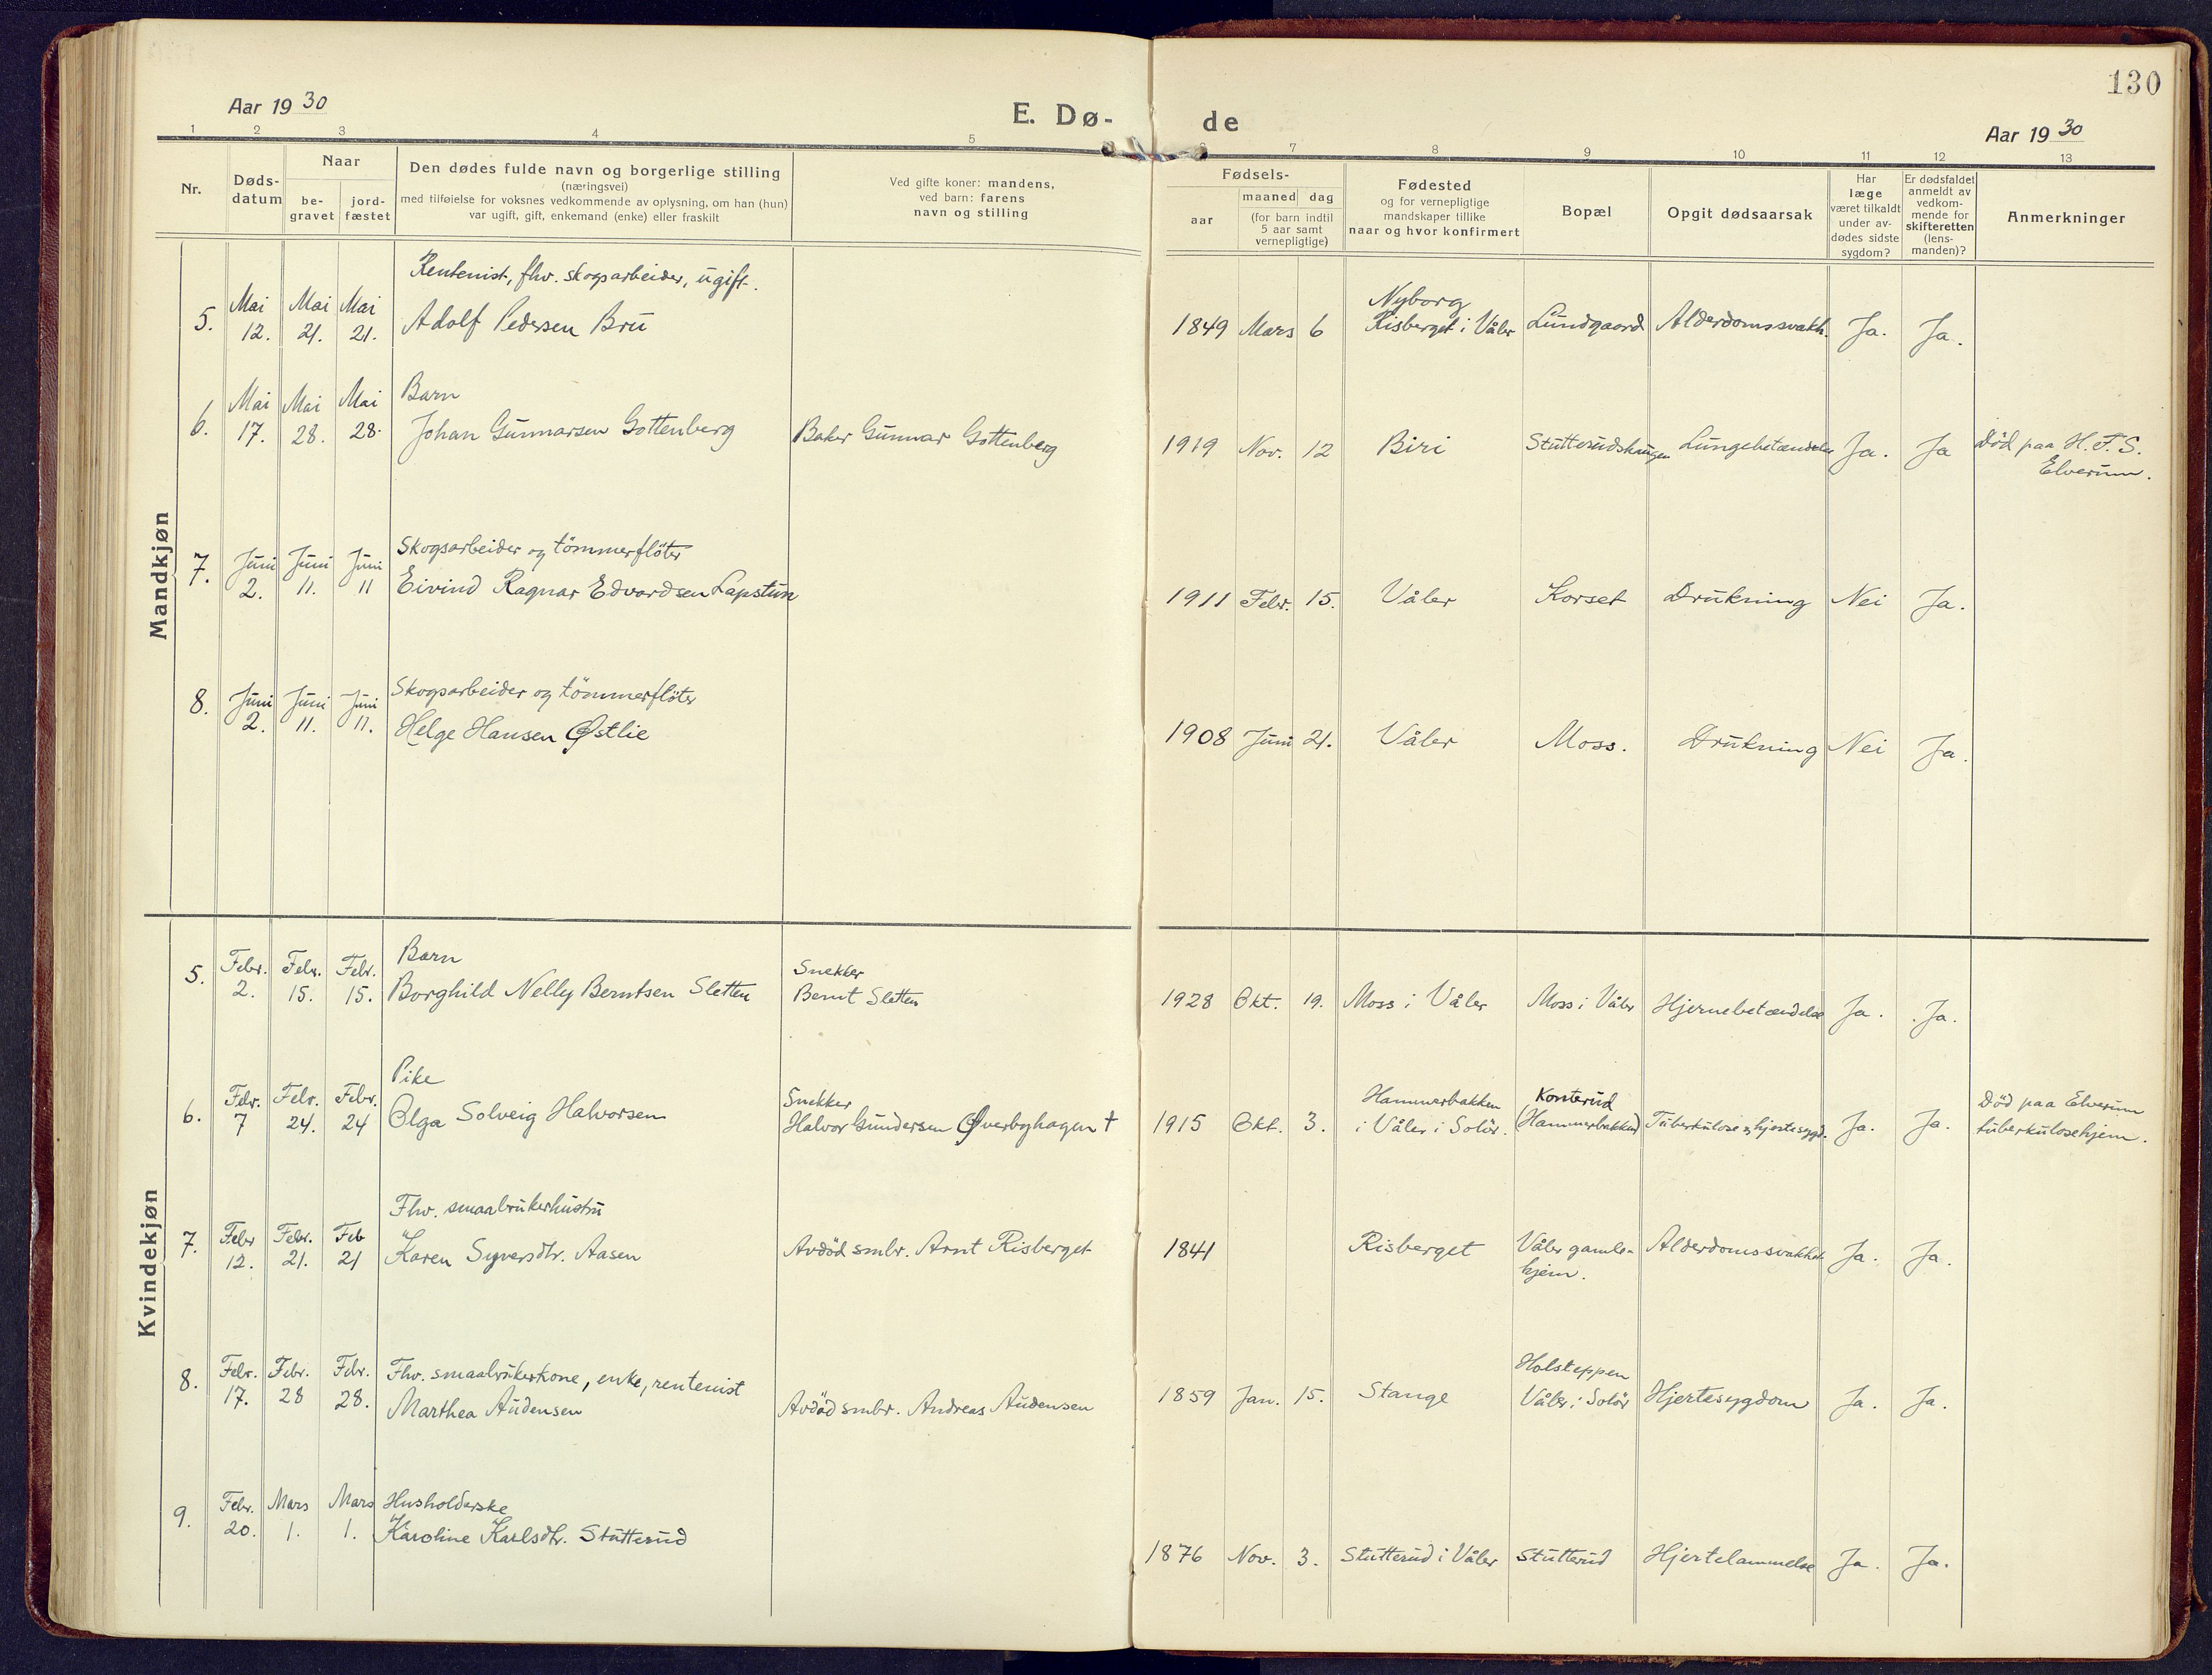 130
Aar 19 30
E. Dø-
de
Aar 19 30
1 2 3 4 5 7 8 9 10 11 12 13
Nr.
Døds-
datum
Naar
be-
gravet
jord-
fæstet
Den dødes fulde navn og borgerlige stilling
(næringsvei)
med tilføielse for voksnes vedkommende av oplysning, om han (hun)
var ugift, gift, enkemand (enke) eller fraskilt
Ved gifte koner: mandens,
ved barn: farens
navn og stilling
Fødsels-
aar
maaned dag
(for barn indtil
5 aar samt
vernepligtige)
Fødested
og for vernepligtige
mandskaper tillike
naar og hvor konfirmert
Bopæl
Opgit dødsaarsak
Har
læge
været tilkaldt
under av-
dødes sidste
sygdom?
Er dødsfaldet
anmeldt av
vedkom-
mende for
skifteretten
(lens-
manden)?
Anmerkninger
Mandkjøn
Rentenist, fhv. skogsarbeider, ugift.
Mai Mai Mai Nyborg
5. 12. 21. 21. Adolf Pedersen Bru 1849 Mars 6 Risberget i Våler Lundgaard Alderdomssvakh. Ja. Ja.
Mai Mai Mai Barn
6. 17. 28. 28. Johan Gunnarsen Gottenberg Baker Gunnar Gottenberg 1919 Nov. 12 Biri Stutterudshaugen Lungebetændelse Ja. Ja Død paa H. F. S.
Elverum.
Juni Juni Juni Skogsarbeider og tömmerflöter
7. 2. 11. 11 Eivind Ragnar Edvardsen Lapstun 1911 Febr. 15. Våler Korset Drukning Nei Ja.
Juni Juni Juni Skogsarbeider og tömmerflöter
8. 2. 11. 11. Helge Hansen Østlie 1908 Juni 21. Våler Moss. Drukning Nei Ja.
Kvindekjøn
Febr. Febr. Febr. Barn Snekker
5. 2. 15. 15. Borghild Nelly Berntsen Sletten Bernt Sletten 1928 Okt. 19. Moss i Våler Moss i Våler Hjernebetændelse Ja. Ja.
Febr. Febr. Febr. Pike Snekker Hammerbakken Konterud Død paa Elverum
6. 7 24. 24 Olga Solveig Halvorsen Halvor Gundersen Øverbyhagen † 1915 Okt. 3. i Våler i Solör. (Hammerbakken) Tuberkulose & hjertesygd. Ja. Ja. tuberkulosehjem.
Febr Febr. Feb Fhv. smaabrukerhustru
7. 12. 21. 21 Karen Syversdtr. Aasen Avdød smbr. Arnt Risberget 1841 Risberget Våler gamle- Alderdomssvakhet Ja. Ja.
hjem.
Febr. Febr. Febr. Fhv. smaabrukerkone, enke, rentenist Holsteppen
8. 17. 28 28. Marthea Audensen Avdöd smbr. Andreas Audensen 1859 Jan. 15. Stange Våler i Solör Hjertesygdom Ja. Ja.
Febr. Mars Mars Husholderske
9. 20. 1. 1. Karoline Karlsdtr. Stutterud 1876 Nov. 3. Stutterud i Våler Stutterud Hjertelammelse Ja. Ja.